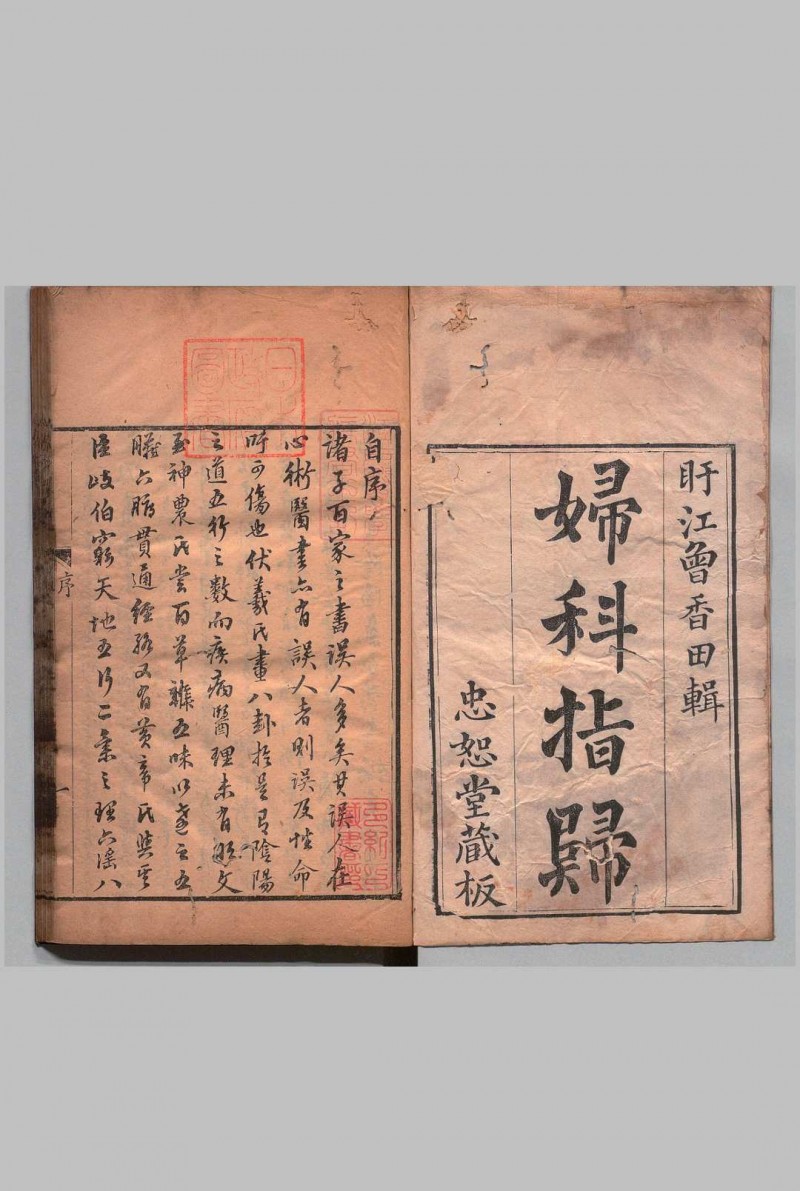 盱江曾香田輯
婦科指歸
忠恕堂藏板
自序
諸子百家之書誤人多矣其誤人在
心術醫書亦有誤人者則誤及性命
吁可傷也伏羲氏畫八卦於是有陰陽
之道五行之數而疾病醫理未有形文
至神農氏嘗百草辨五味以
臟六腑貫通經絡又有黃帝氏與其
臣岐伯窮天地五行二氣之理六 八
序
一